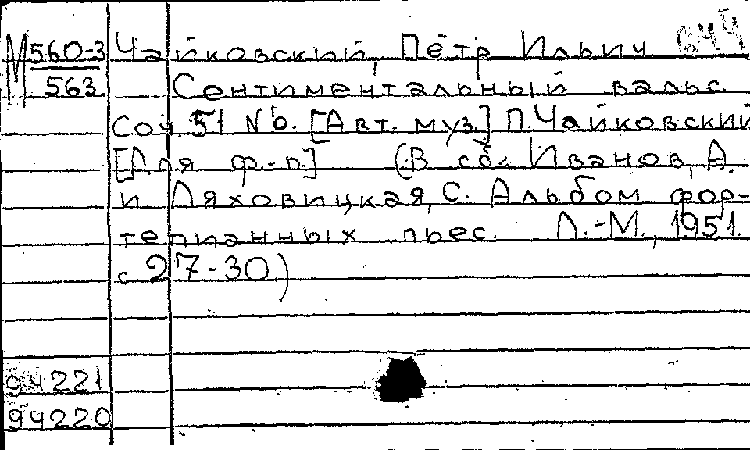 М 560-3 Чайковский, Пётр Ильич
563 Сентиментальный вальс.
Соч. 51 № 6. [Авт. муз.] П. Чайковский
[Для ф-п.] (В сб. Иванов, А.
и Ляховицкая, С. Альбом фор-
тепианных пьес. Л.-М., 1951.
с 27-30)
94221
94220